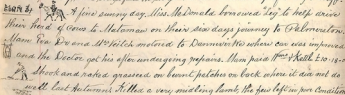 A fine sunny day, Miss McDonald borrowed "Leg" to help drive
their herd of cows to Matamau on their six days journey to Palmerston.
Mam Eva Do and Mr Welch motored to Dannevirke where car was improved
and the Doctor got his after undergoing repairs. Mam paid & Kettle £10-18-0
I shook and raked grasseed on burnt patches on back where it did not do
well last Autumn. Killed a very middling lamb, the few left in poor Condition